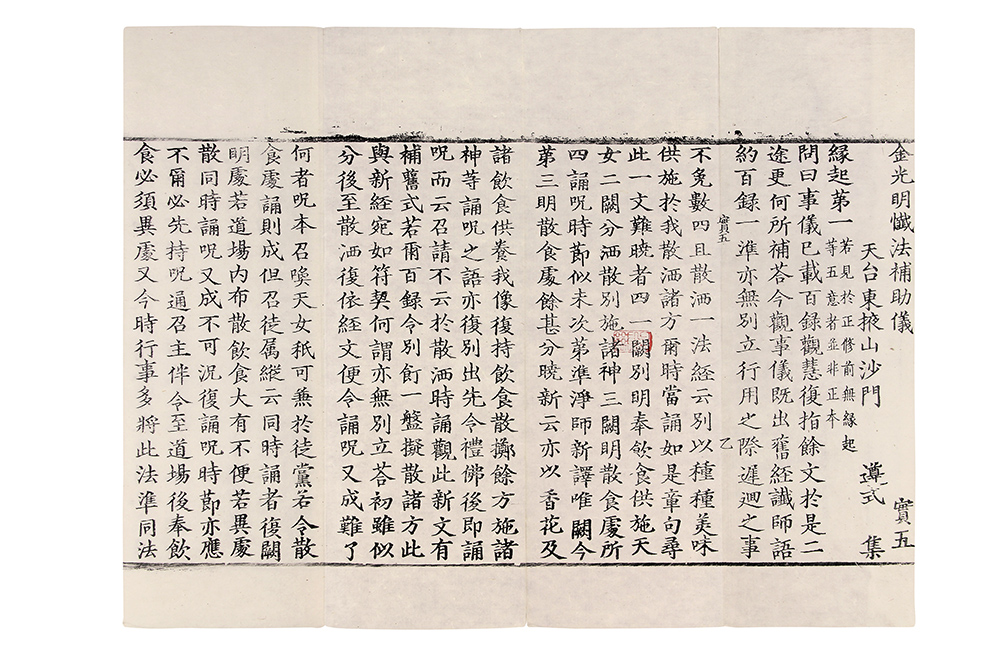 金光明懺法補助儀 實五
天台東掖山沙門 遵式 集
緣起第一 若見於正修前無緣起
等五意者並非正本
問曰事儀已載百錄觀慧復指餘文於是二
途更何所補荅今觀事儀既出舊經讖師語
約百錄一準亦無別立行用之際遲迴之事
實五 乙
不免數四且散洒一法經云別以種種美味
供施於我散洒諸方爾時當誦如是章句尋
此一文難曉者四一闕別明奉飲食供施天
女二闕分洒散別施諸神三闕明散食處所
四誦呪時節似未次第準淨師新譯唯闕今
第三明散食處餘甚分曉新云亦以香花及
諸飲食供養我像復持飲食散擲餘方施諸
神等誦呪之語亦復別出先令禮佛後即誦
呪而云召請不云於散洒時誦觀此新文有
補舊式若爾百錄令別飣一盤擬散諸方此
與新經宛如符契何謂亦無別立荅初雖似
分後至散洒復依經文便令誦呪又成難了
何者呪本召喚天女秖可兼於徒黨若令散
食處誦則成但召徒属縱云同時誦者復闕
明處若道場內布散飲食大有不便若異處
散同時誦呪又成不可況復誦呪時節亦應
不爾必先持呪遍召主伴令至道場後奉飲
食必須異處又今時行事多將此法準同法